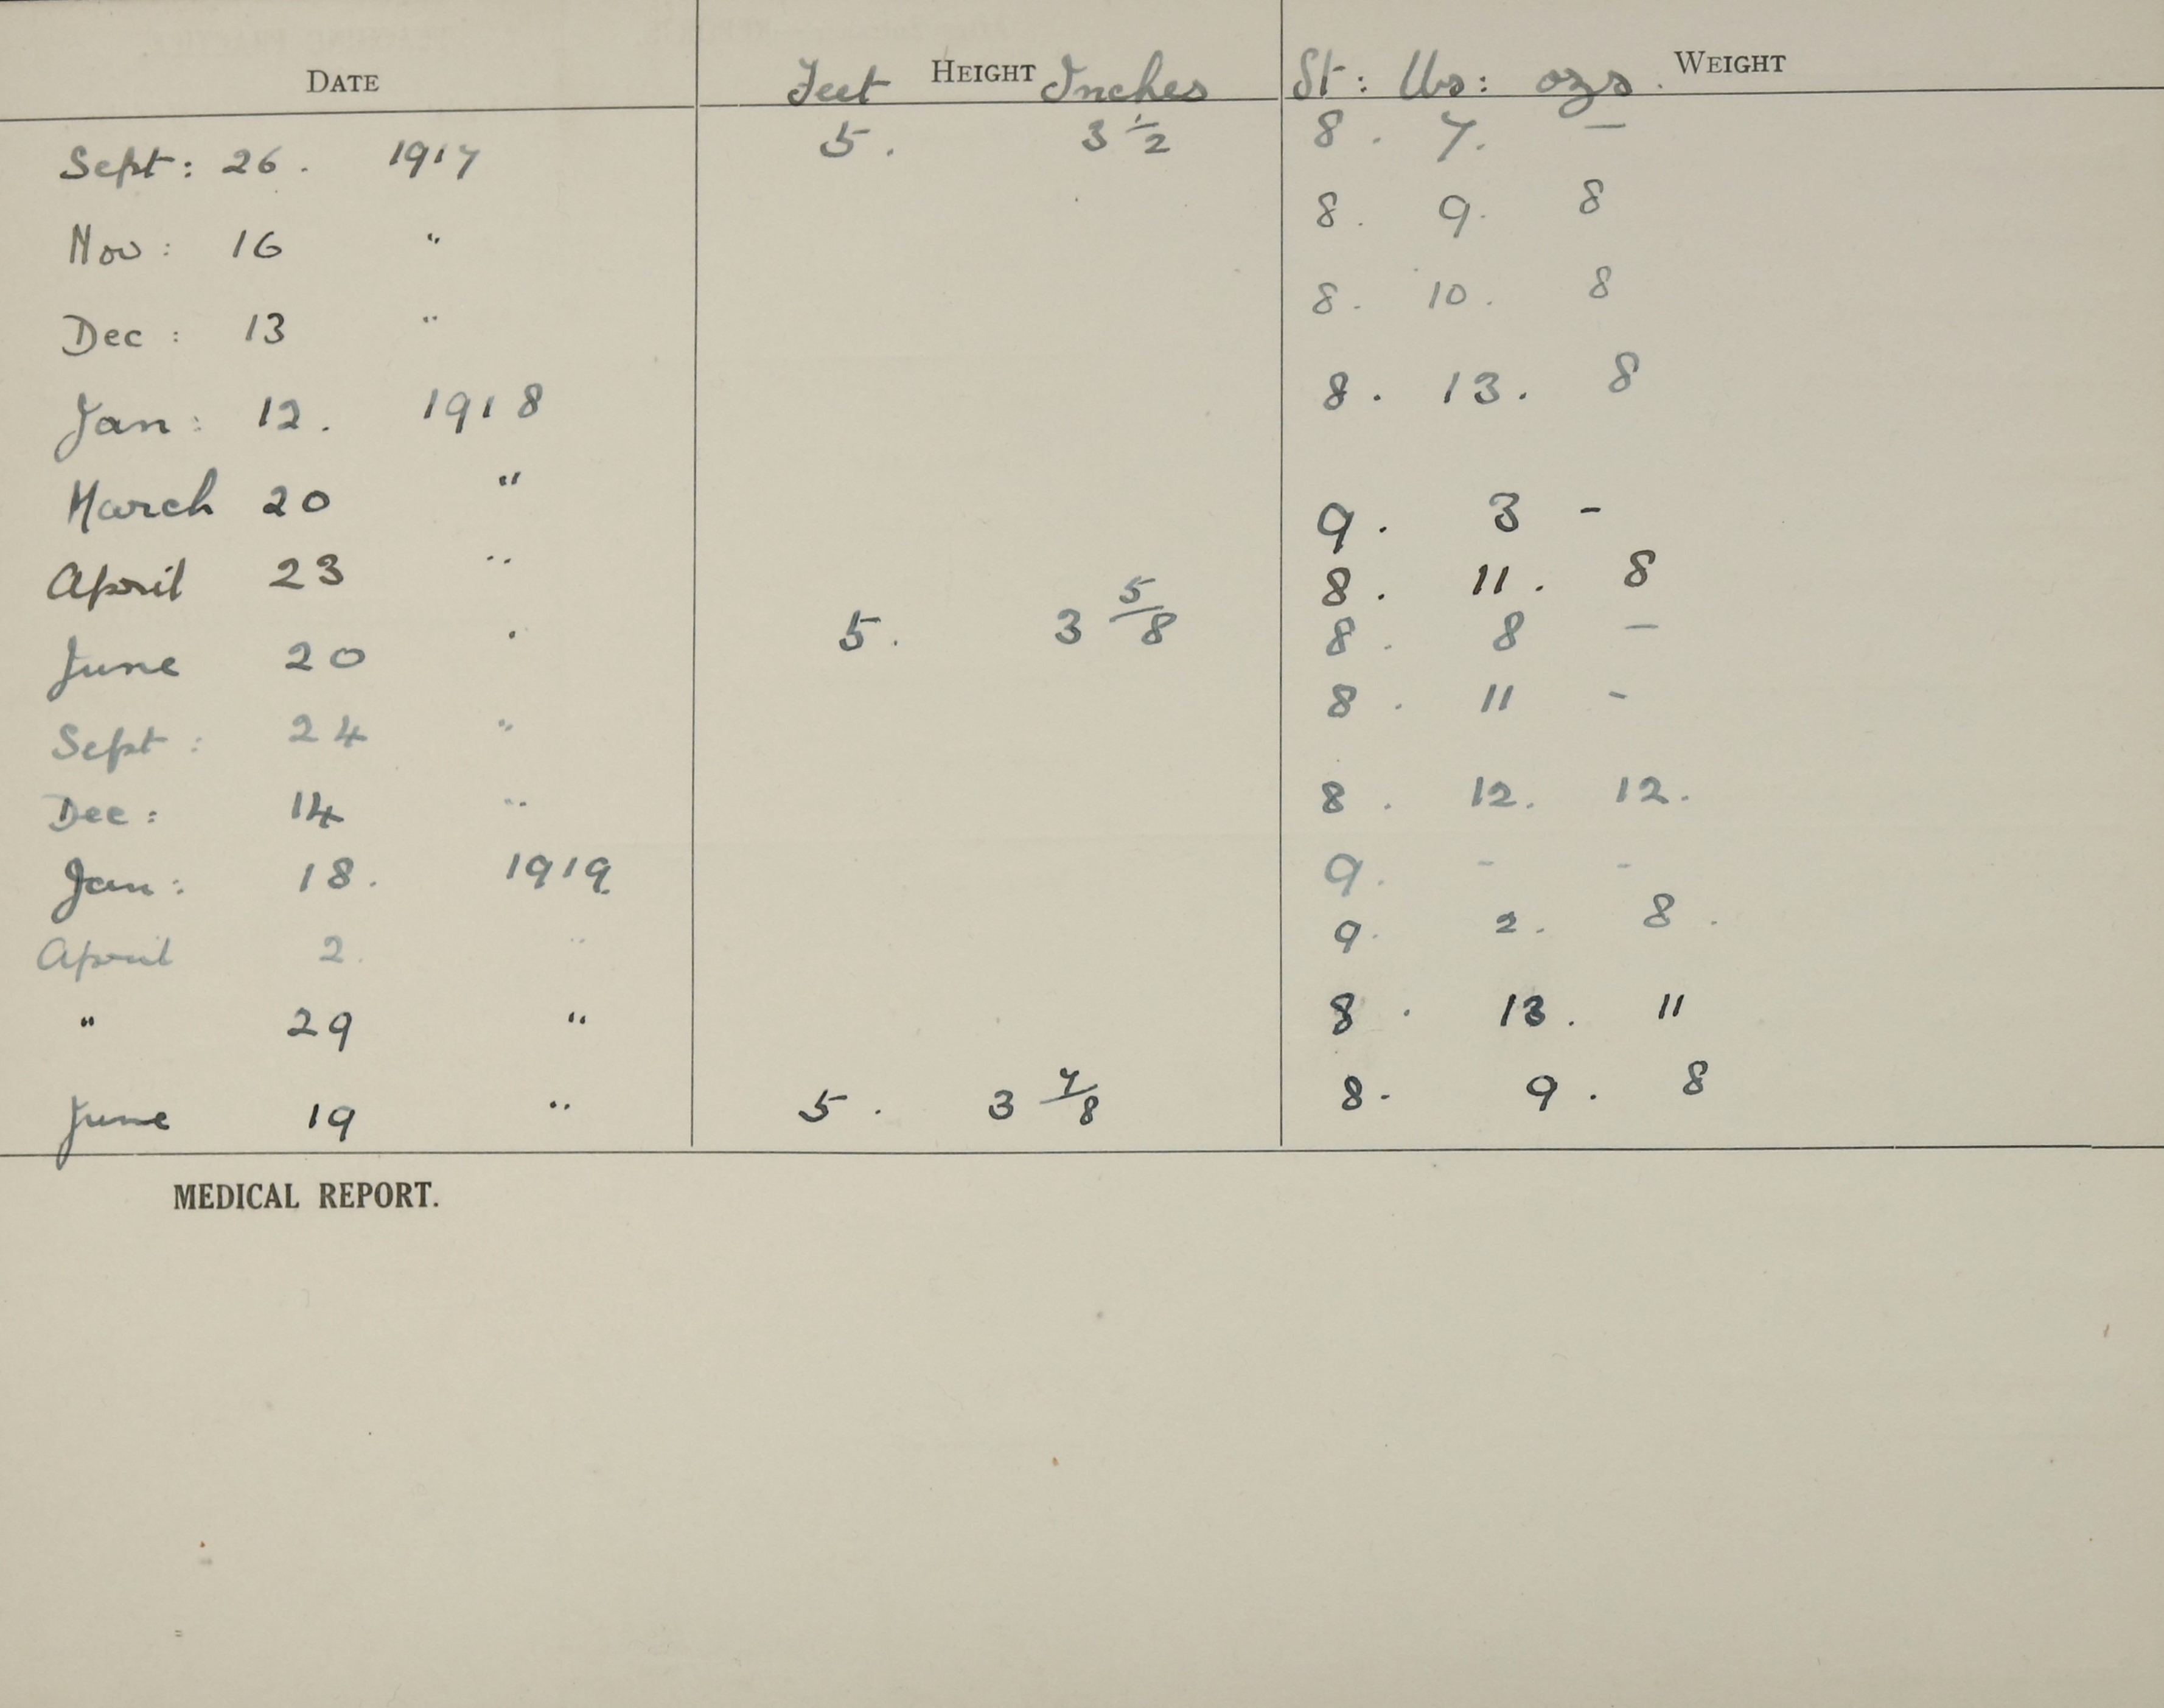 DATE Feet HEIGHT Inches St: lbs: ozs. WEIGHT
Sept: 26. 1917 5. 3 1/2 8. 7. —
Nov: 16 " 8. 9. 8
Dec: 13 " 8. 10. 8
Jan: 12. 1918 8. 13. 8
March 20 " 9. 3 -
April 23 " 8. 11. 8
June 20 " 5. 3 5/8 8. 8 —
Sept: 24 " 8. 11 -
Dec: 14 " 8. 12. 12.
Jan: 18. 1919 9. - -
April 2. " 9. 2. 8.
" 29 " 8. 13. 11
June 19 " 5. 3 7/8 8. 9. 8
MEDICAL REPORT.